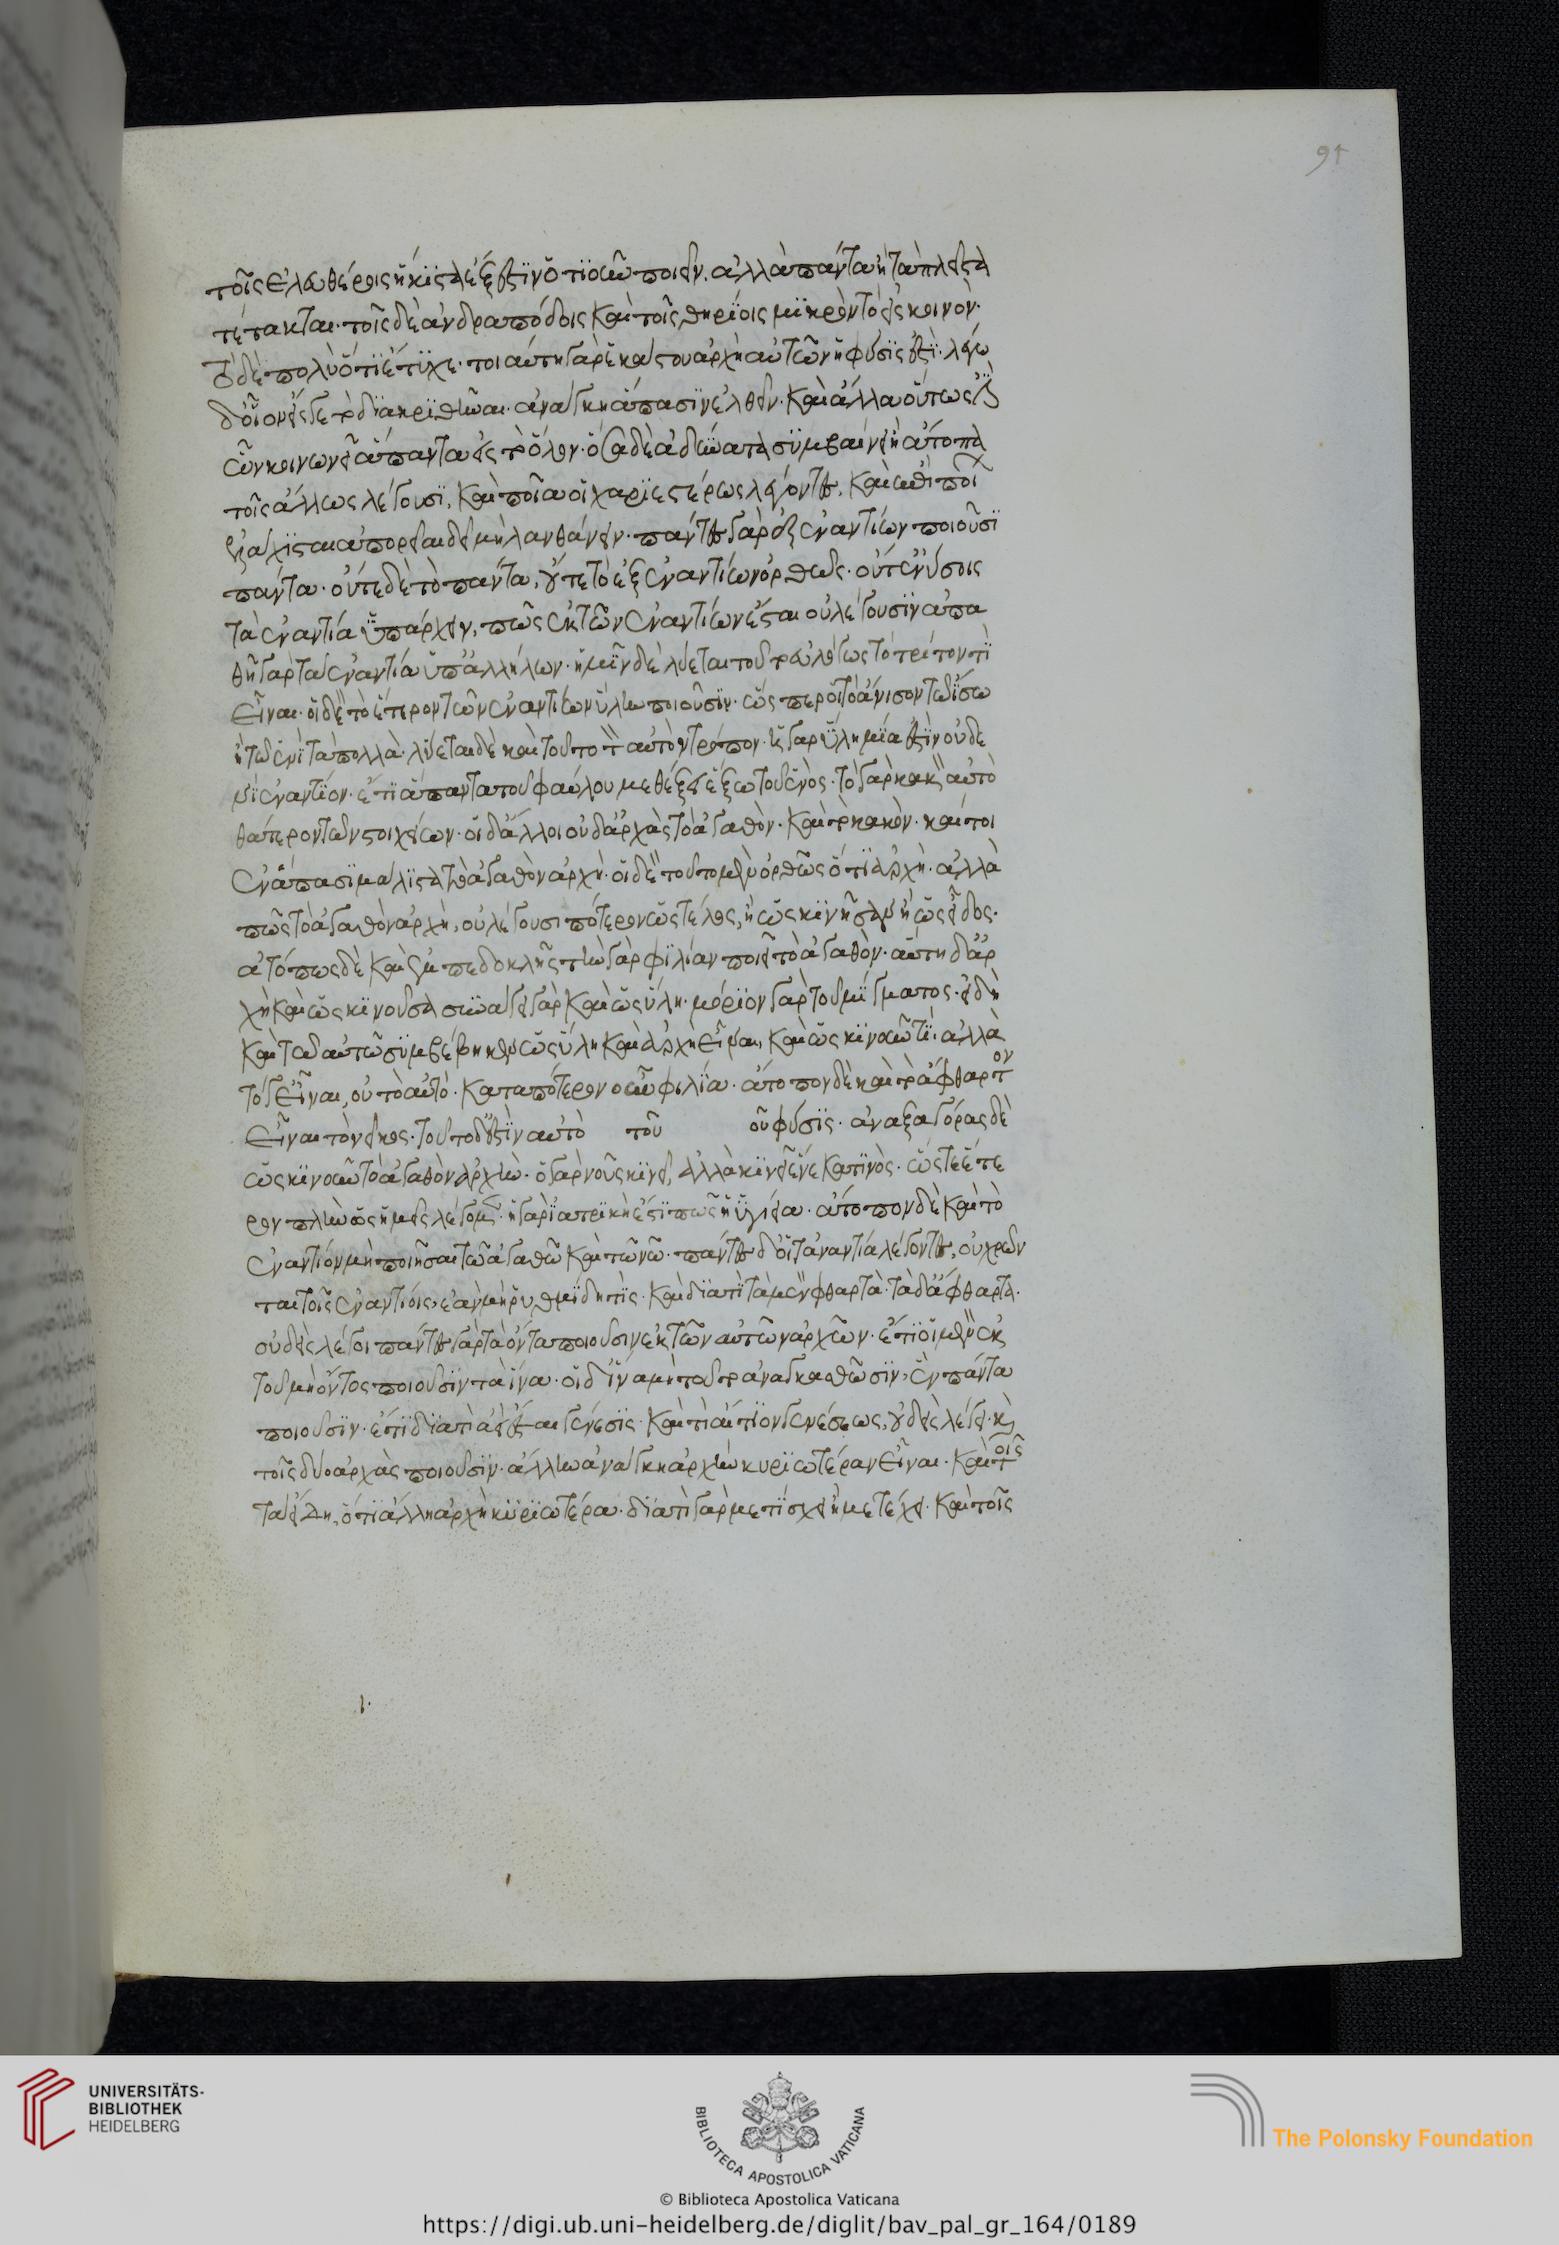 τοῖς ἐλευθέροις ἥκιστα ἔξεστιν ὅτι οὖν ποιεῖν. ἀλλὰ πάντα ἢ τὰ πλεῖστα
τέτακται· τοῖς δὲ ἀνδραπόδοις καὶ τοῖς θηρίοις μικρὸν τὸ εἰς κοινὸν·
τὸ δὲ πολὺ ὅτι ἔτυχε· τοιαύτη γὰρ ἑκάστου ἀρχὴ αὐτῶν ἡ φύσις ἐστί· λέγω
δ' οἷον εἴς γε τὸ διακριθῆναι· ἀνάγκη ἅπασιν ἐλθεῖν· καὶ ἄλλα οὕτως ἐστὶ
ὧν κοινωνεῖ ἅπαντα εἰς τὸ ὅλον· ὅσα δὲ ἀδύνατα συμβαίνει ἢ ἄτοπα
τοῖς ἄλλως λέγουσι, καὶ ποῖα οἱ χαριεστέρως λέγοντες, καὶ ἐπὶ ποίων
ἐλάχισται ἀπορίαι δεῖ μὴ λανθάνειν· πάντες γὰρ ἐξ ἐναντίων ποιοῦσι
πάντα· οὔτε δὲ τὸ πάντα, οὔτε τὸ ἐξ ἐναντίων ὀρθῶς· οὔτ' ἐν ὅσοις
τὰ ἐναντία ὑπάρχει, πῶς ἐκ τῶν ἐναντίων ἔσται οὐ λέγουσιν ἀπα
θῆ γὰρ τὰ ἐναντία ὑπ' ἀλλήλων· ἡμῖν δὲ λύεται τοῦτο εὐλόγως τὸ τρίτον τὶ
εἶναι· οἱ δὲ τὸ ἕτερον τῶν ἐναντίων ὕλην ποιοῦσιν· ὥσπερ οἱ τὸ ἄνισον τῶ ἴσω
ἢ τῶ ἑνὶ τὰ πολλὰ· λύεται δὲ καὶ τοῦτο τὸν αὐτὸν τρόπον· ἡ γὰρ ὕλη μία ἐστὶν οὐδε
νὶ ἐναντίον· ἔτι ἅπαντα τοῦ φαύλου μεθέξει ἔξω τοῦ ἑνὸς· τὸ γὰρ κακὸν αὐτὸ
θάτερον τῶν στοιχείων· οἱ δ' ἄλλοι οὐδ' ἀρχὰς τὸ ἀγαθὸν· καὶ τὸ κακὸν· καίτοι
ἐν ἅπασι μάλιστα τὸ ἀγαθὸν ἀρχὴ· οἱ δὲ τοῦτο μὲν ὀρθῶς ὅτι ἀρχὴ· ἀλλὰ
πῶς τὸ ἀγαθὸν ἀρχὴ, οὐ λέγουσι πότερον ὡς τέλος, ἢ ὡς κινῆσαν ἢ ὡς εἶδος·
ἀτόπως δὲ καὶ ἐμπεδοκλῆς τὴν γὰρ φιλίαν ποιεῖ τὸ ἀγαθὸν· αὕτη δ' ἀρ
χὴ καὶ ὡς κινοῦσα συνάγει γὰρ καὶ ὡς ὕλη· μόριον γὰρ τοῦ μίγματος· εἰ δὴ
καὶ τῶ αὐτῶ συμβέβηκεν ὡς ὕλη καὶ ἀρχὴ εἶναι, καὶ ὡς κινοῦντι· ἀλλὰ
τό γ' εἶναι, οὐ τὸ αὐτὸ· κατὰ πότερον οὖν φιλία· ἄτοπον δὲ καὶ τὸ ἄφθαρτον
εἶναι τὸ νεῖκος· τοῦτο δ' ἐστὶν αὐτὸ τοῦ οῦ φύσις· ἀναξαγόρας δὲ
ὡς κινοῦν τὸ ἀγαθὸν ἀρχὴν· ὁ γὰρ νοῦς κινεῖ, ἀλλὰ κινεῖ ἕνεκα τινὸς· ὥστε ἕτε
ρον πλὴν ὡς ἡμεῖς λέγομεν· ἡ γὰρ ἰατρικὴ ἐστί πως ἡ ὑγίεια· ἄτοπον δὲ καὶ τὸ
ἐναντίον μὴ ποιῆσαι τῶ ἀγαθῶ καὶ τῶ νῶ· πάντες δ' οἱ τἀναντία λέγοντες, οὐ χρῶν
ται τοῖς ἐναντίοις, ἐὰν μὴ ῥυθμίση τὶς· καὶ διατὶ τὰ μὲν φθαρτὰ· τὰ δ' ἄφθαρτα·
οὐδεὶς λέγει πάντες γὰρ τὰ ὄντα ποιοῦσιν ἐκ τῶν αὐτῶν ἀρχῶν· ἔτι οἱ μὲν ἐκ
τοῦ μὴ ὄντος ποιοῦσιν τὰ ὄντα· οἱ δ' ἵνα μὴ τοῦτο ἀναγκασθῶσιν, ἓν πάντα
ποιοῦσιν· ἔτι διατὶ ἀεὶ ἔσται γένεσις· καὶ τὶ αἴτιον γενέσεως, οὐδεὶς λέγει· καὶ
τοῖς δύο ἀρχὰς ποιοῦσιν· ἄλλην ἀνάγκη ἀρχὴν κυριωτέραν εἶναι· καὶ τοῖς
τὰ εἴδη, ὅτι ἄλλη ἀρχὴ κυριωτέρα· διατὶ γὰρ μετίσχει ἢ μετέχει· καὶ τοῖς
UNIVERSITÄTS-
BIBLIOTHEK
HEIDELBERG
BIBLIOTECA APOSTOLICA VATICANA
The Polonsky Foundation
© Biblioteca Apostolica Vaticana
https://digi.ub.uni-heidelberg.de/diglit/bav_pal_gr_164/0189